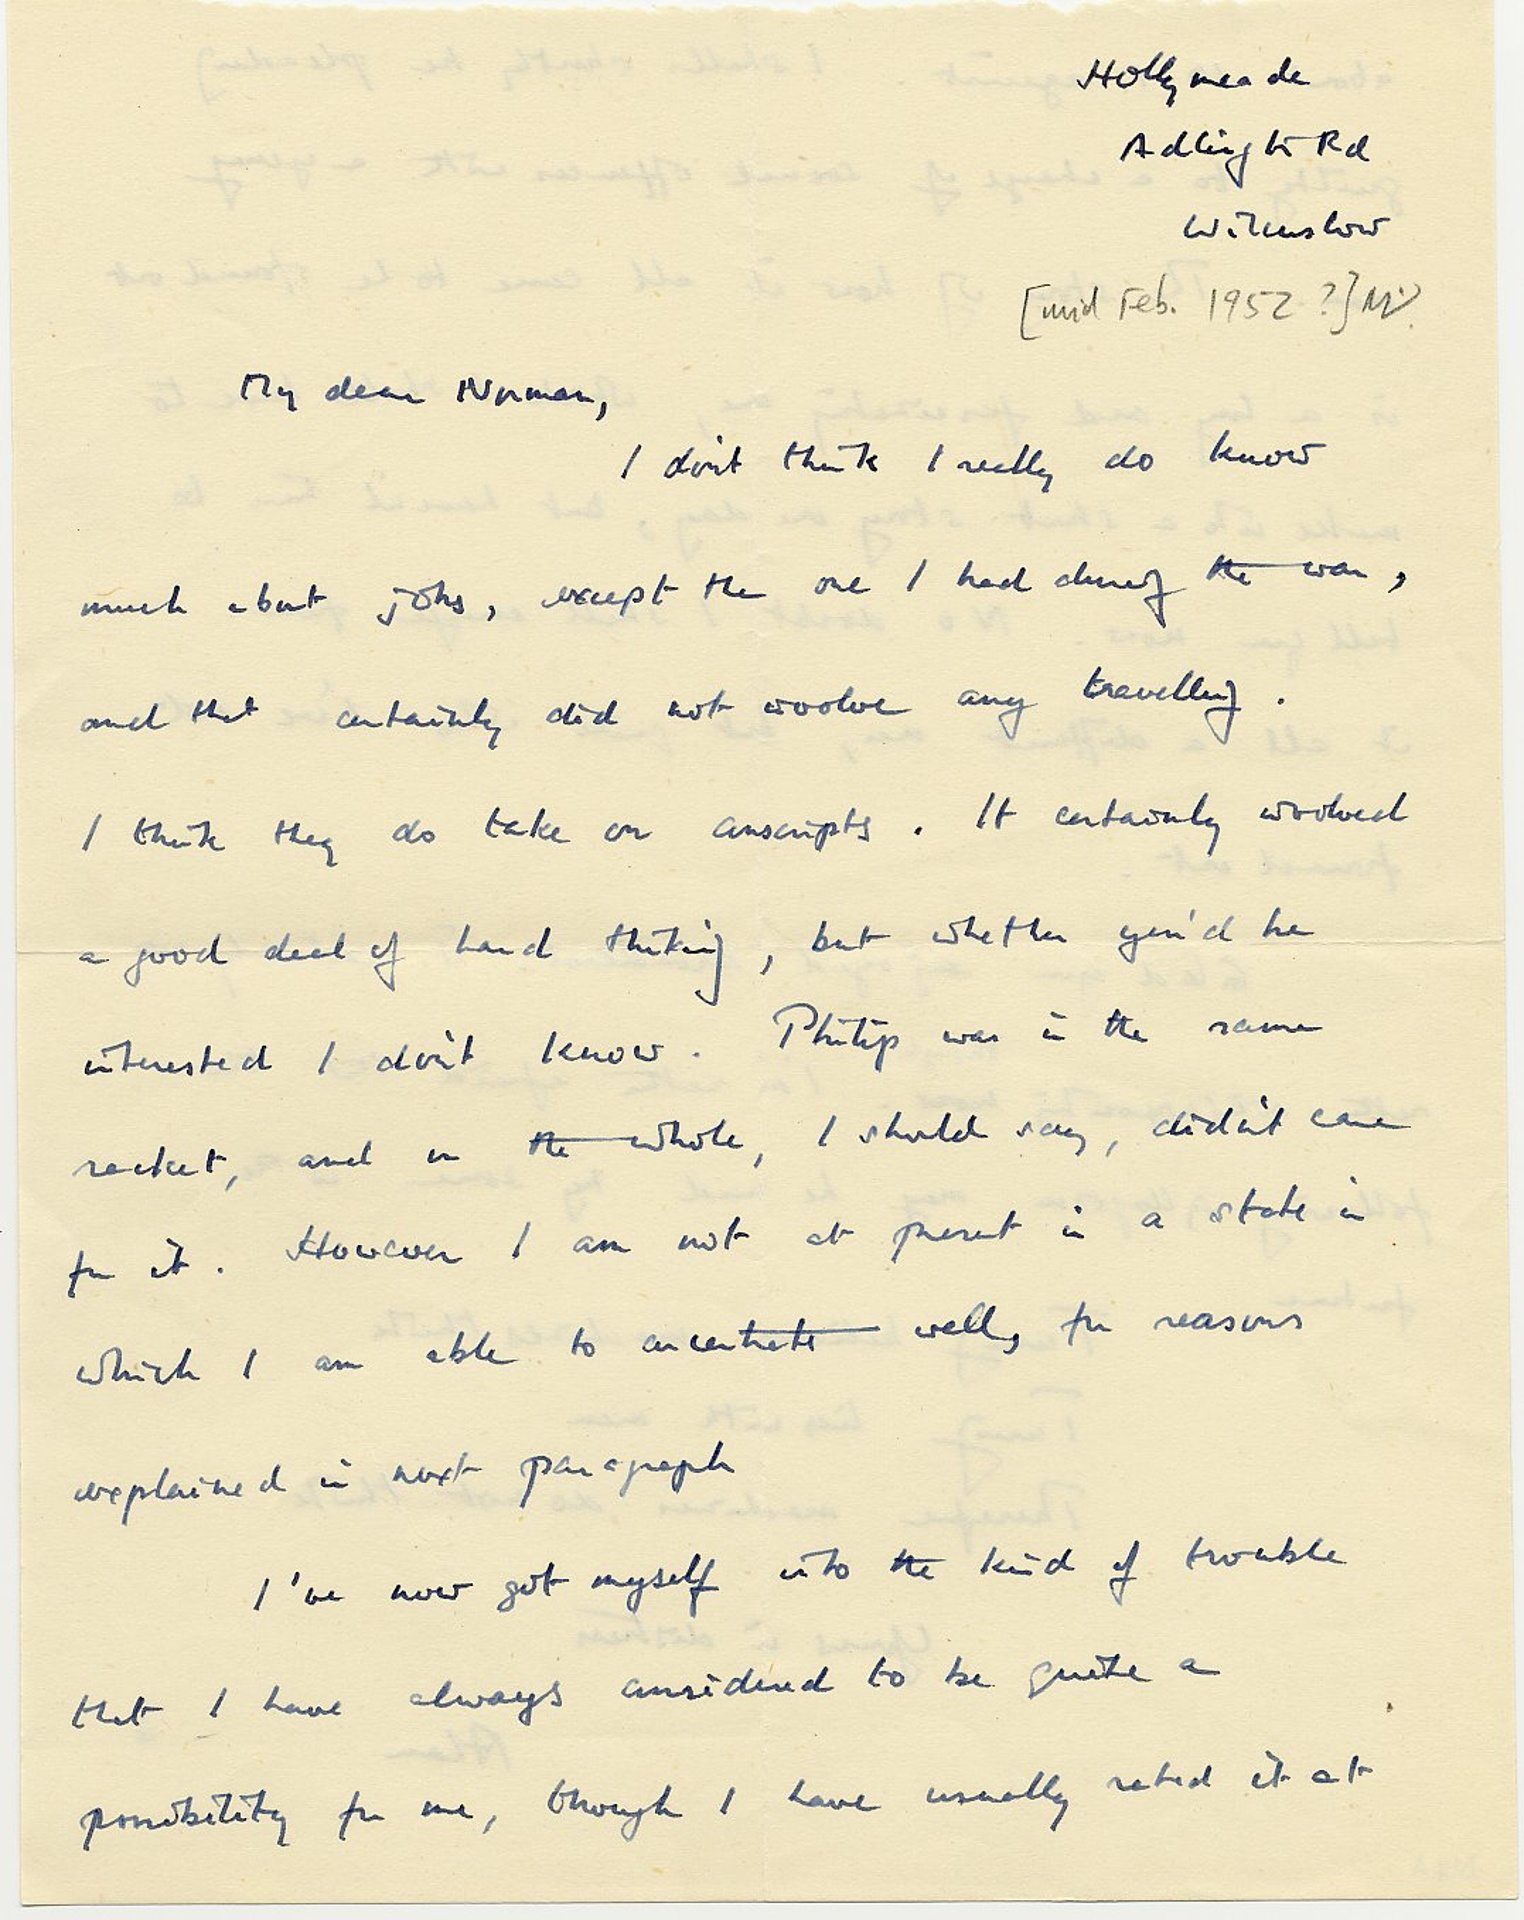 Hollymeade
Adlington Rd
Wilmslow
[mid Feb. 1952 ?]
My dear Norman,
I don't think I really do know
much about jobs, except the one I had during the war,
and that certainly did not involve any travelling.
I think they do take on conscripts. It certainly involved
a good deal of hard thinking, but whether you'd be
interested I don't know. Philip was in the same
racket, and on the whole, I should say, didn't care
for it. However I am not at present in a state in
which I am able to concentrate well, for reasons
explained in next paragraph
I've now got myself into the kind of trouble
that I have always considered to be quite a
possibility for me, though I have usually rated it at